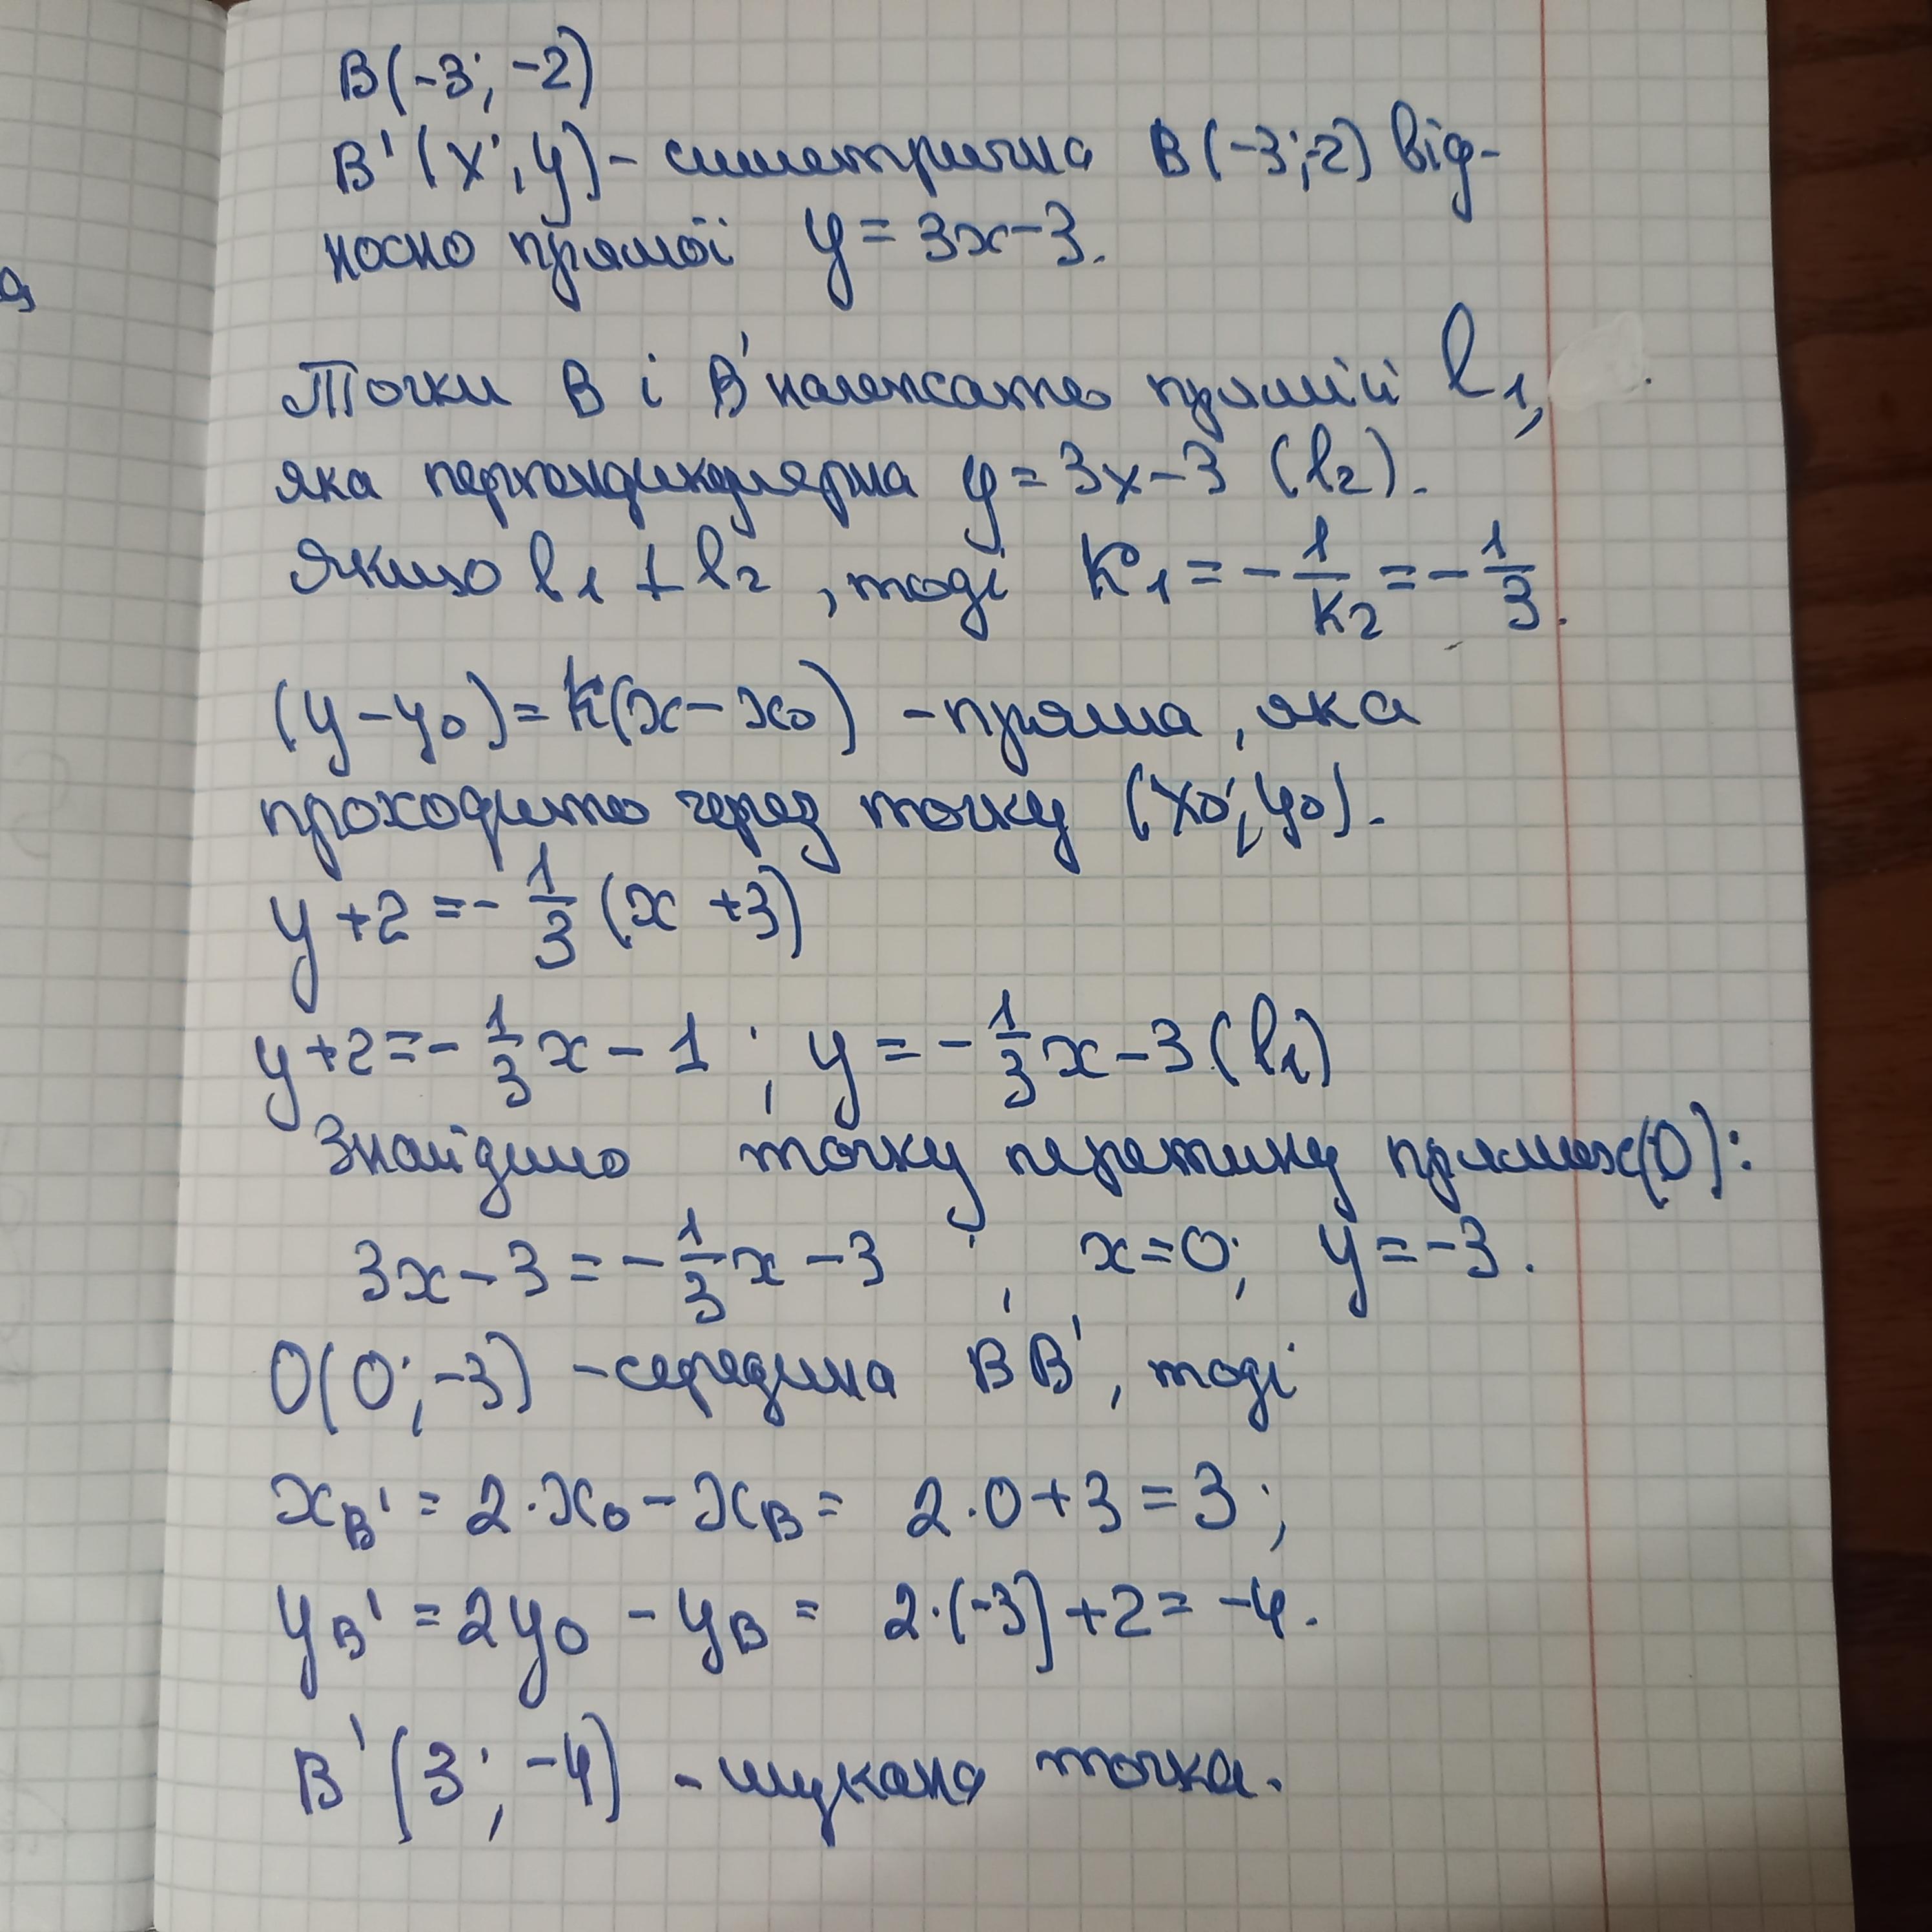 B(-3; -2)
B'(x; y) - симетрична B(-3; -2) від-
носно прямої y = 3x - 3.
Точки B і B' належать прямій l₁,
яка перпендикулярна y = 3x - 3 (l₂).
Якщо l₁ ⊥ l₂, тоді k₁ = -1/k₂ = -1/3.
(y - y₀) = k(x - x₀) - пряма, яка
проходить через точку (x₀; y₀).
y + 2 = -1/3 (x + 3)
y + 2 = -1/3 x - 1 ; y = -1/3 x - 3 (l₁)
Знайдемо точку перетину прямих (O):
3x - 3 = -1/3 x - 3 ; x = 0; y = -3.
O(0; -3) - середина BB', тоді
x_B' = 2·x₀ - x_B = 2·0 + 3 = 3;
y_B' = 2y₀ - y_B = 2·(-3) + 2 = -4.
B'(3; -4) - шукана точка.